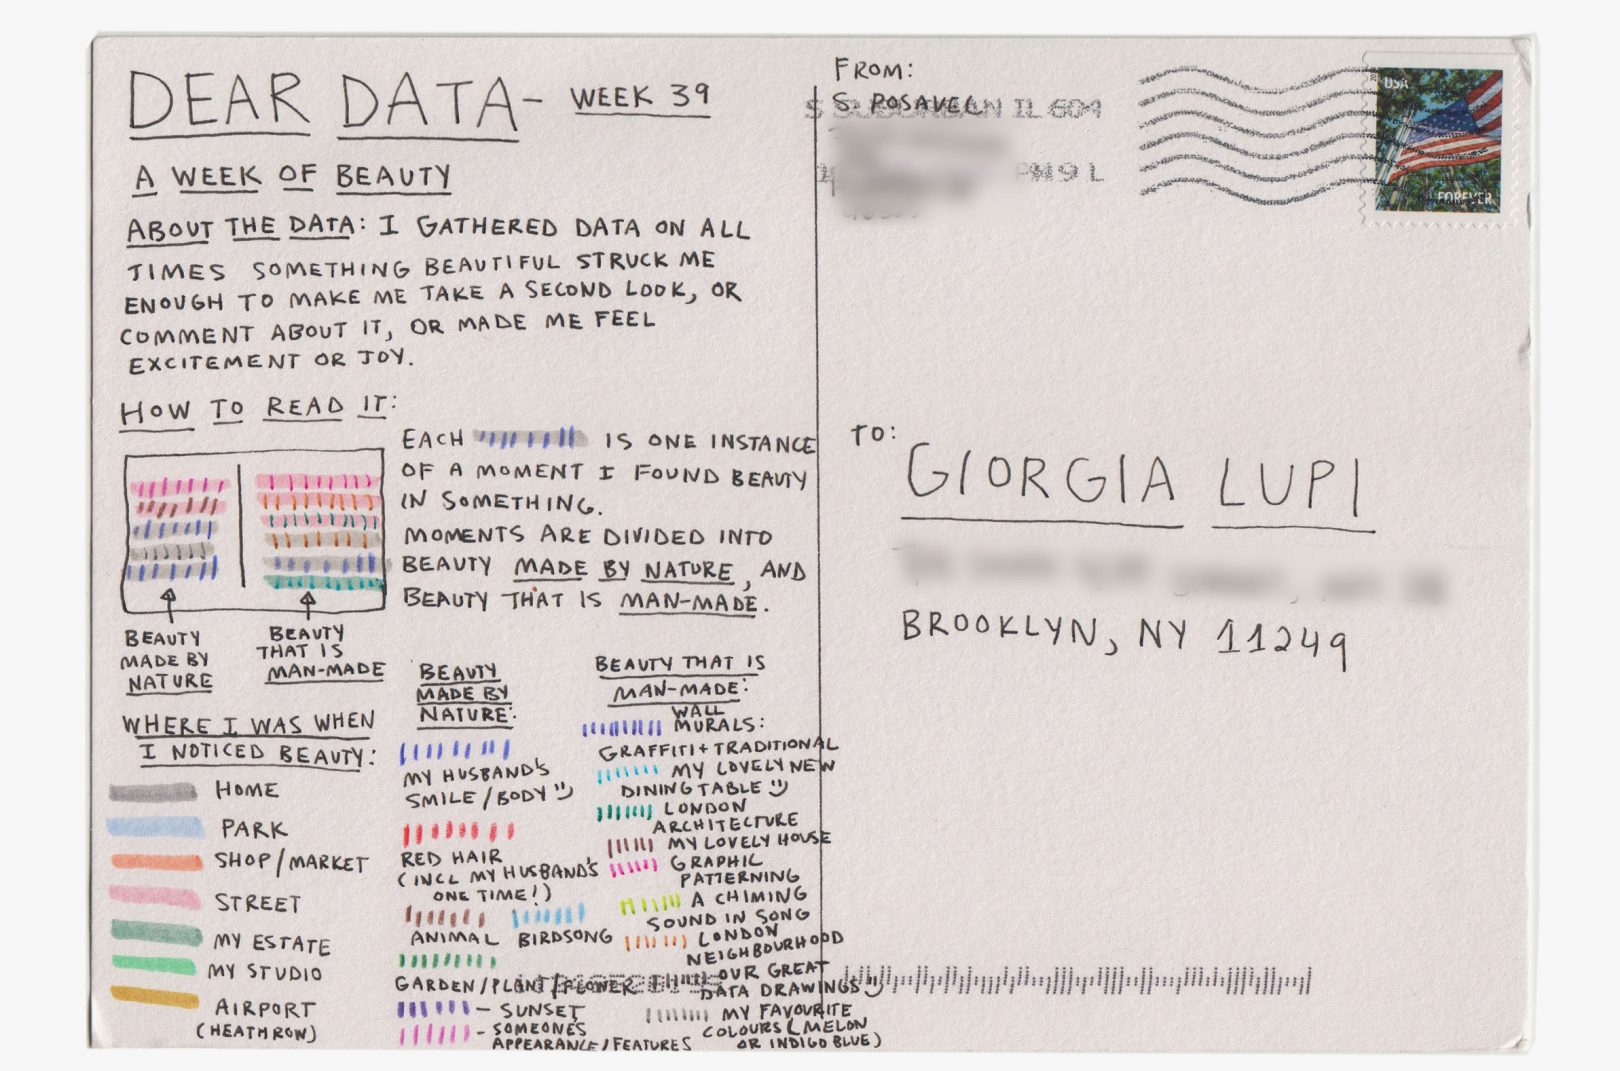 DEAR DATA - WEEK 39
A WEEK OF BEAUTY
ABOUT THE DATA: I GATHERED DATA ON ALL
TIMES SOMETHING BEAUTIFUL STRUCK ME
ENOUGH TO MAKE ME TAKE A SECOND LOOK, OR
COMMENT ABOUT IT, OR MADE ME FEEL
EXCITEMENT OR JOY.
HOW TO READ IT:
EACH IS ONE INSTANCE
OF A MOMENT I FOUND BEAUTY
IN SOMETHING.
MOMENTS ARE DIVIDED INTO
BEAUTY MADE BY NATURE, AND
BEAUTY THAT IS MAN-MADE.
BEAUTY
MADE BY
NATURE
BEAUTY
THAT IS
MAN-MADE
WHERE I WAS WHEN
I NOTICED BEAUTY:
HOME
PARK
SHOP/MARKET
STREET
MY ESTATE
MY STUDIO
AIRPORT
(HEATHROW)
BEAUTY
MADE BY
NATURE:
MY HUSBAND'S
SMILE/BODY
RED HAIR
(INCL MY HUSBAND'S
ONE TIME!)
ANIMAL BIRDSONG
GARDEN/PLANT/FLOWER
- SUNSET
- SOMEONES
APPEARANCE/FEATURES
BEAUTY THAT IS
MAN-MADE:
WALL
MURALS:
GRAFFITI + TRADITIONAL
MY LOVELY NEW
DINING TABLE
LONDON
ARCHITECTURE
MY LOVELY HOUSE
GRAPHIC
PATTERNING
A CHIMING
SOUND IN SONG
LONDON
NEIGHBOURHOOD
OUR GREAT
DATA DRAWINGS
MY FAVOURITE
COLOURS (MELON
OR INDIGO BLUE)
FROM:
S. POSAVEC
S SUBURBAN IL 604
PM 9 L
USA
FOREVER
TO:
GIORGIA LUPI
BROOKLYN, NY 11249